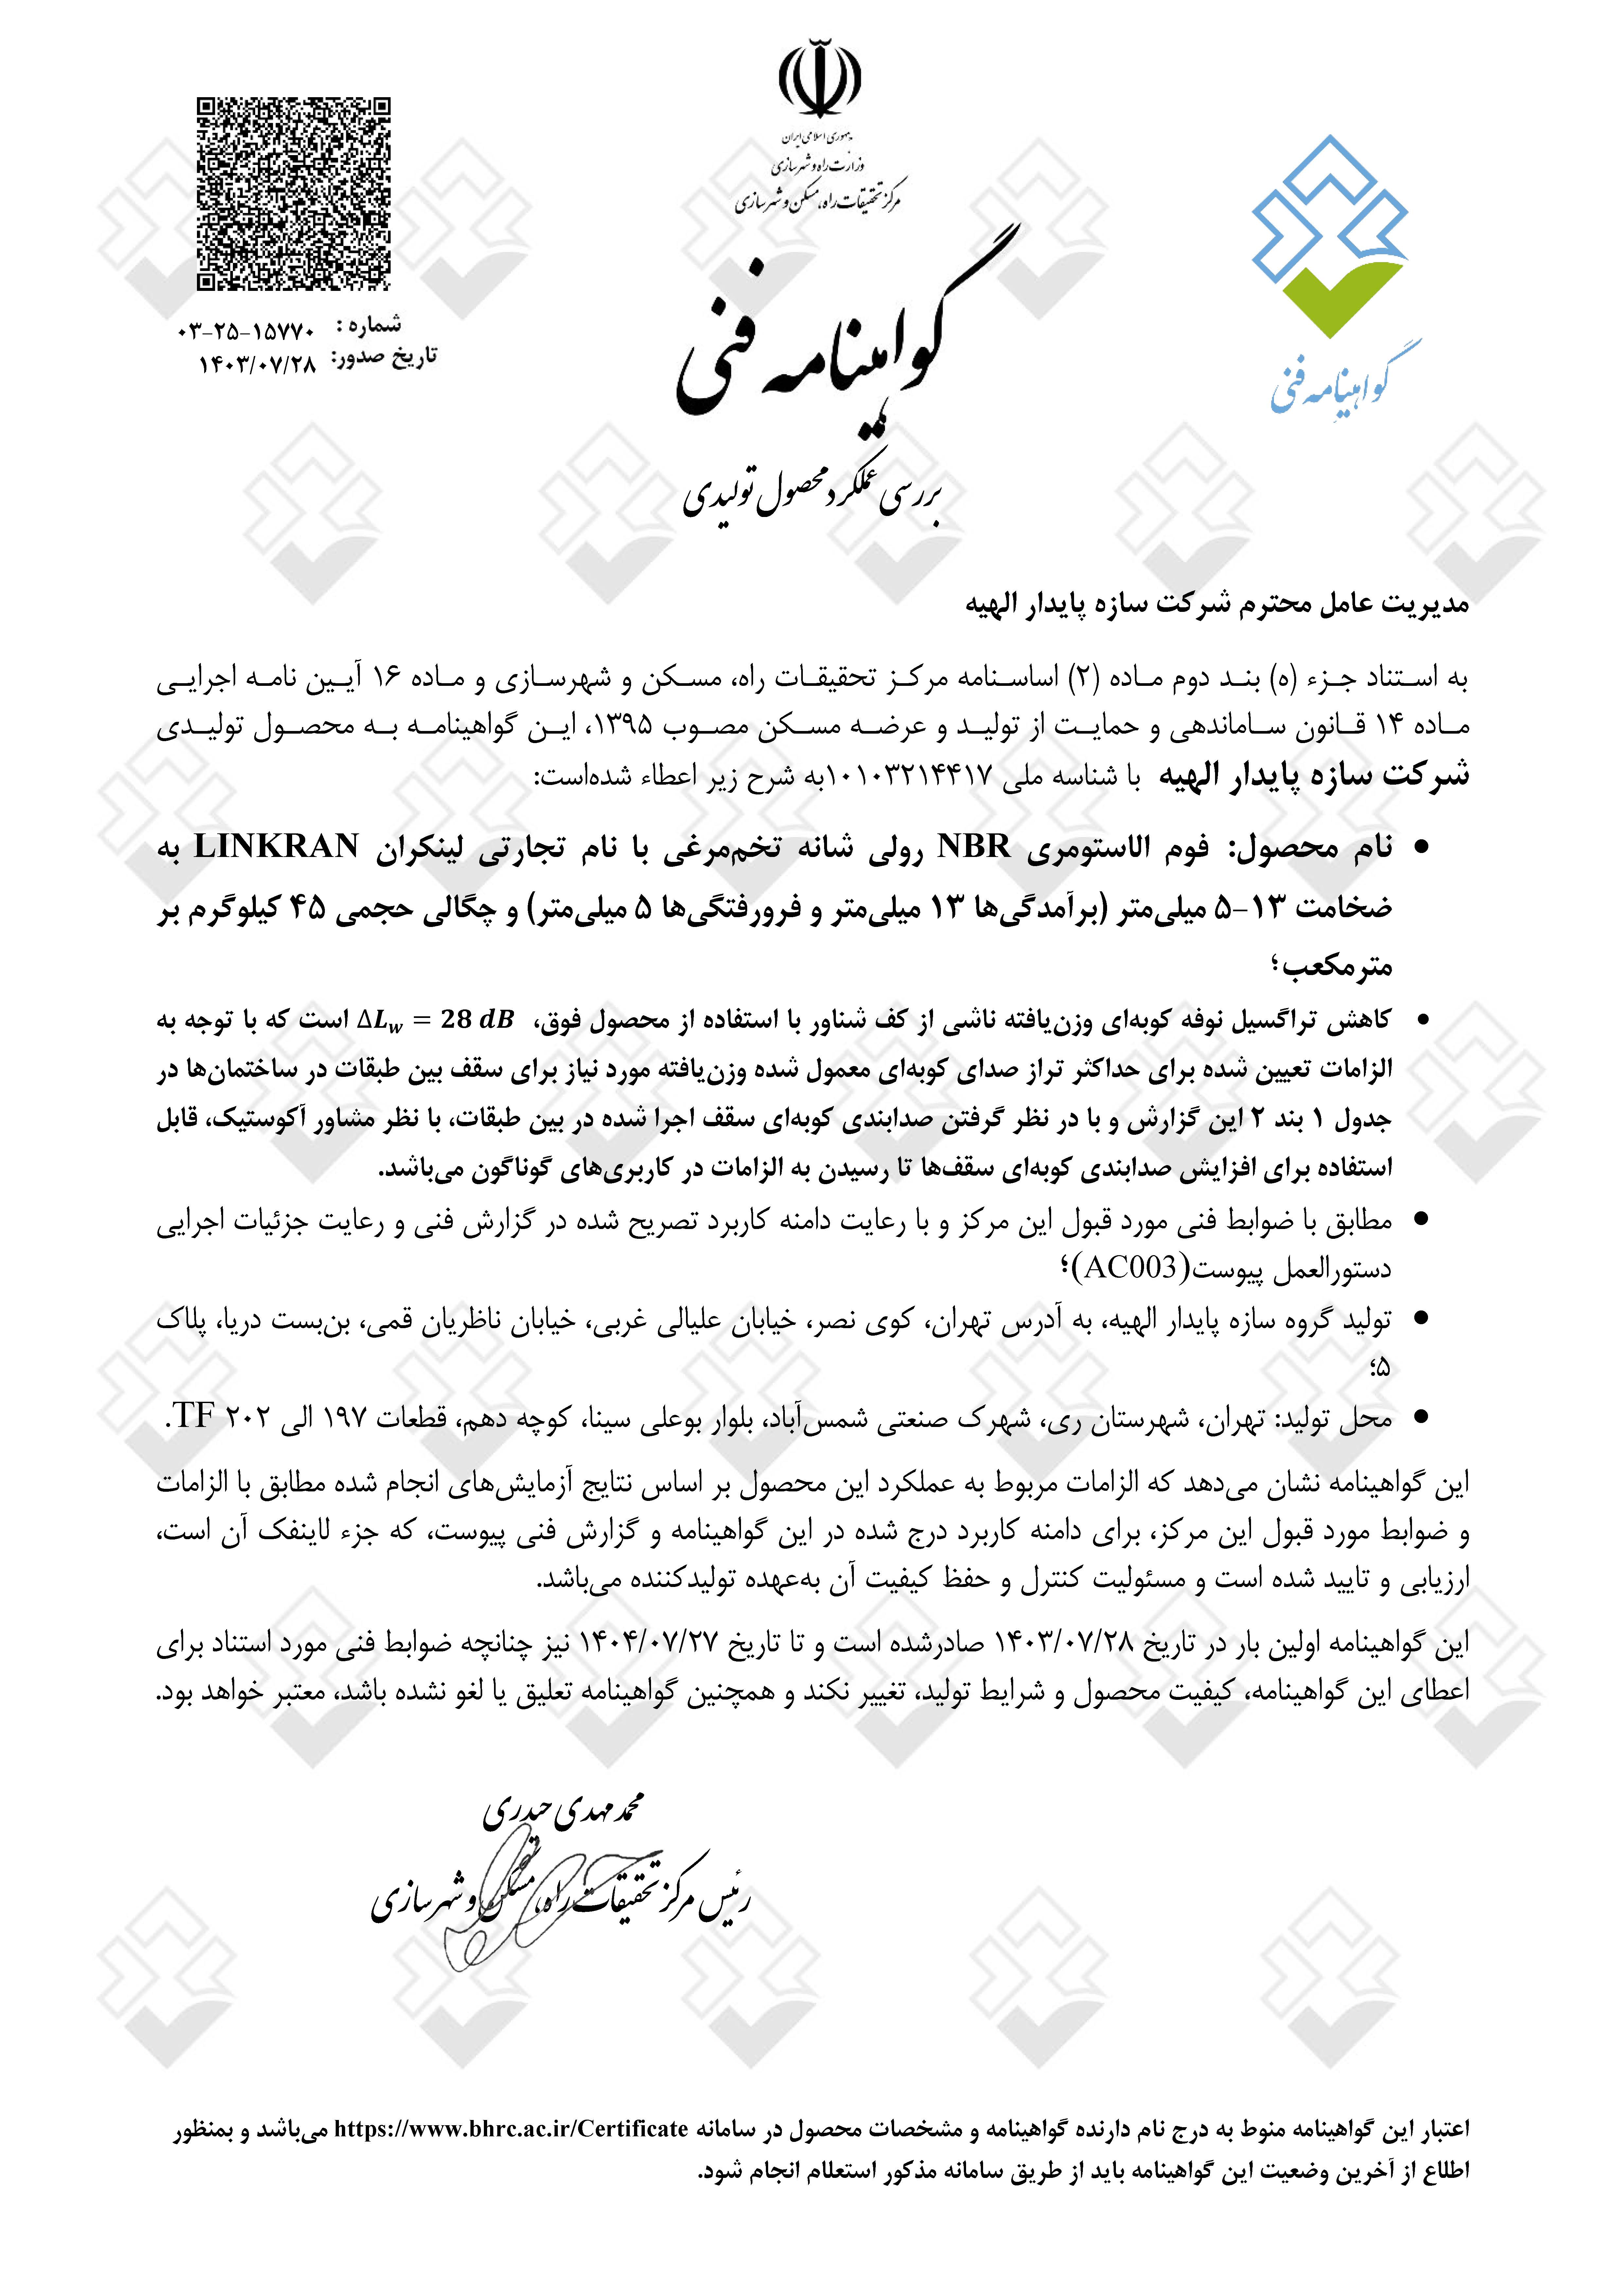 جمهوری اسلامی ایران
وزارت راه و شهرسازی
مرکز تحقیقات راه، مسکن و شهرسازی
گواهینامه فنی
بررسی عملکرد محصول تولیدی
گواهینامه فنی
شماره : ۰۳-۲۵-۱۵۷۷۰
تاریخ صدور: ۱۴۰۳/۰۷/۲۸
مدیریت عامل محترم شرکت سازه پایدار الهیه
به استناد جزء (ه) بند دوم ماده (۲) اساسنامه مرکز تحقیقات راه، مسکن و شهرسازی و ماده ۱۶ آیین نامه اجرایی
ماده ۱۴ قانون ساماندهی و حمایت از تولید و عرضه مسکن مصوب ۱۳۹۵، این گواهینامه به محصول تولیدی
شرکت سازه پایدار الهیه با شناسه ملی ۱۰۱۰۳۲۱۴۴۱۷به شرح زیر اعطاء شده‌است:
• نام محصول: فوم الاستومری NBR رولی شانه تخم‌مرغی با نام تجارتی لینکران LINKRAN به
ضخامت ۱۳-۵ میلی‌متر (برآمدگی‌ها ۱۳ میلی‌متر و فرورفتگی‌ها ۵ میلی‌متر) و چگالی حجمی ۴۵ کیلوگرم بر
مترمکعب؛
• کاهش تراگسیل نوفه کوبه‌ای وزن‌یافته ناشی از کف شناور با استفاده از محصول فوق، ΔL_w = 28 dB است که با توجه به
الزامات تعیین شده برای حداکثر تراز صدای کوبه‌ای معمول شده وزن‌یافته مورد نیاز برای سقف بین طبقات در ساختمان‌ها در
جدول ۱ بند ۲ این گزارش و با در نظر گرفتن صدابندی کوبه‌ای سقف اجرا شده در بین طبقات، با نظر مشاور آکوستیک، قابل
استفاده برای افزایش صدابندی کوبه‌ای سقف‌ها تا رسیدن به الزامات در کاربری‌های گوناگون می‌باشد.
• مطابق با ضوابط فنی مورد قبول این مرکز و با رعایت دامنه کاربرد تصریح شده در گزارش فنی و رعایت جزئیات اجرایی
دستورالعمل پیوست(AC003)؛
• تولید گروه سازه پایدار الهیه، به آدرس تهران، کوی نصر، خیابان علیالی غربی، خیابان ناظریان قمی، بن‌بست دریا، پلاک
۵؛
• محل تولید: تهران، شهرستان ری، شهرک صنعتی شمس‌آباد، بلوار بوعلی سینا، کوچه دهم، قطعات ۱۹۷ الی ۲۰۲ TF.
این گواهینامه نشان می‌دهد که الزامات مربوط به عملکرد این محصول بر اساس نتایج آزمایش‌های انجام شده مطابق با الزامات
و ضوابط مورد قبول این مرکز، برای دامنه کاربرد درج شده در این گواهینامه و گزارش فنی پیوست، که جزء لاینفک آن است،
ارزیابی و تایید شده است و مسئولیت کنترل و حفظ کیفیت آن به‌عهده تولیدکننده می‌باشد.
این گواهینامه اولین بار در تاریخ ۱۴۰۳/۰۷/۲۸ صادرشده است و تا تاریخ ۱۴۰۴/۰۷/۲۷ نیز چنانچه ضوابط فنی مورد استناد برای
اعطای این گواهینامه، کیفیت محصول و شرایط تولید، تغییر نکند و همچنین گواهینامه تعلیق یا لغو نشده باشد، معتبر خواهد بود.
محمد مهدی حیدری
رئیس مرکز تحقیقات راه، مسکن و شهرسازی
اعتبار این گواهینامه منوط به درج نام دارنده گواهینامه و مشخصات محصول در سامانه https://www.bhrc.ac.ir/Certificate می‌باشد و بمنظور
اطلاع از آخرین وضعیت این گواهینامه باید از طریق سامانه مذکور استعلام انجام شود.